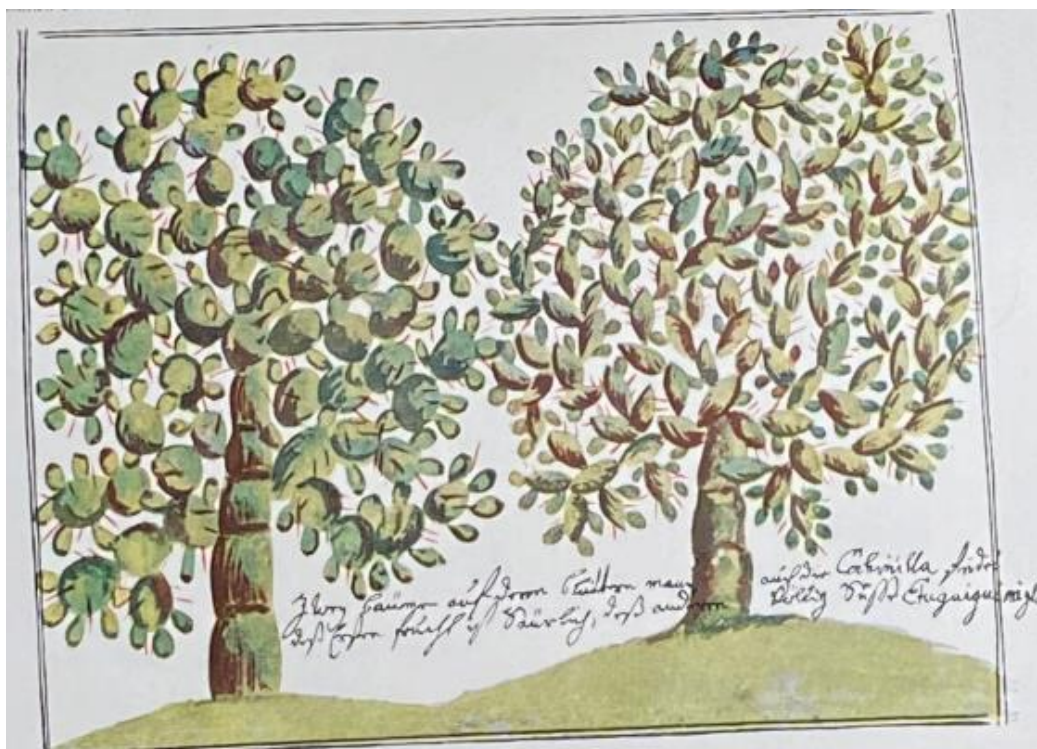 Zwey Bäume auf deren Blättern man auch die Cochinilla findet
deß Ersten frucht ist Säurlich, deß anderen völlig Süß